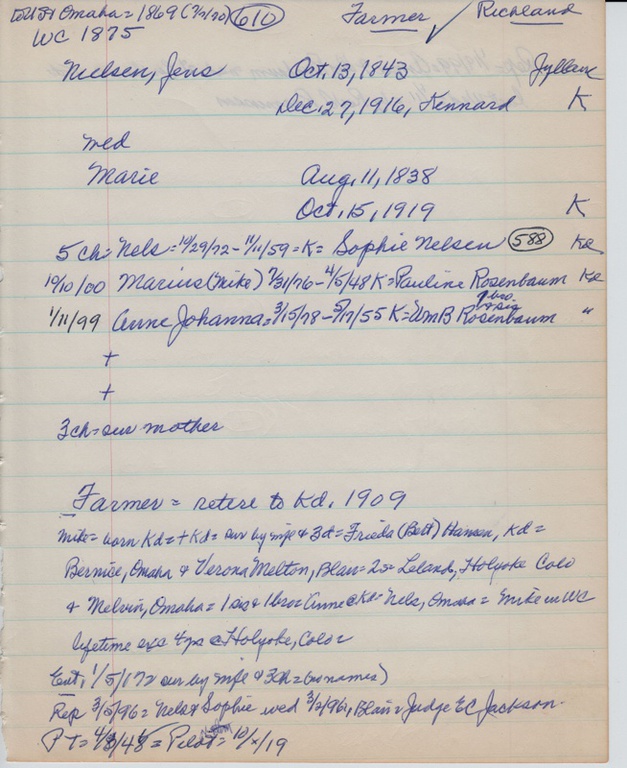 to US & Omaha = 1869 (7/1/70) 610 Farmer ✓ Richland
WC 1875
Nielsen, Jens Oct. 13, 1843 Jylland
Dec. 27, 1916, Kennard K
wed
Marie Aug. 11, 1838
Oct. 15, 1919 K
5 ch = Nels = 10/29/72 - 11/11/59 = K = Sophie Nelsen 588 Kd
19/10/00 Marius (Mike) 7/31/76 - 4/5/48 K = Pauline Rosenbaum Kd
bro. & sis
1/11/99 Anne Johanna = 3/15/78 - 5/17/55 K = Wm B Rosenbaum "
+
+
3 ch = sur mother
Farmer = retire to Kd. 1909
Mike = born Kd = + Kd = sur by wife & 3 d = Frieda (Bert) Hansen, Kd =
Bernice, Omaha & Verona Melton, Blair = 2 s = Leland, Holyoke Colo
& Melvin, Omaha = 1 sis & 1 bro = Anne @ Kd = Nels, Omaha = Mike in WC
lifetime exc 4 yrs @ Holyoke, Colo =
Ent, 1/5/17 = sur by wife & 3 ch = (no names)
Rep 3/5/96 = Nels & Sophie wed 3/2/96, Blair = Judge E C Jackson.
PT = 4/8/48 = Pilot = 10/x/19